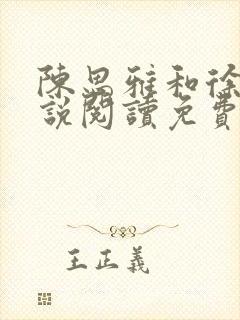 陳思雅和徐
說閱讀免費
王正義